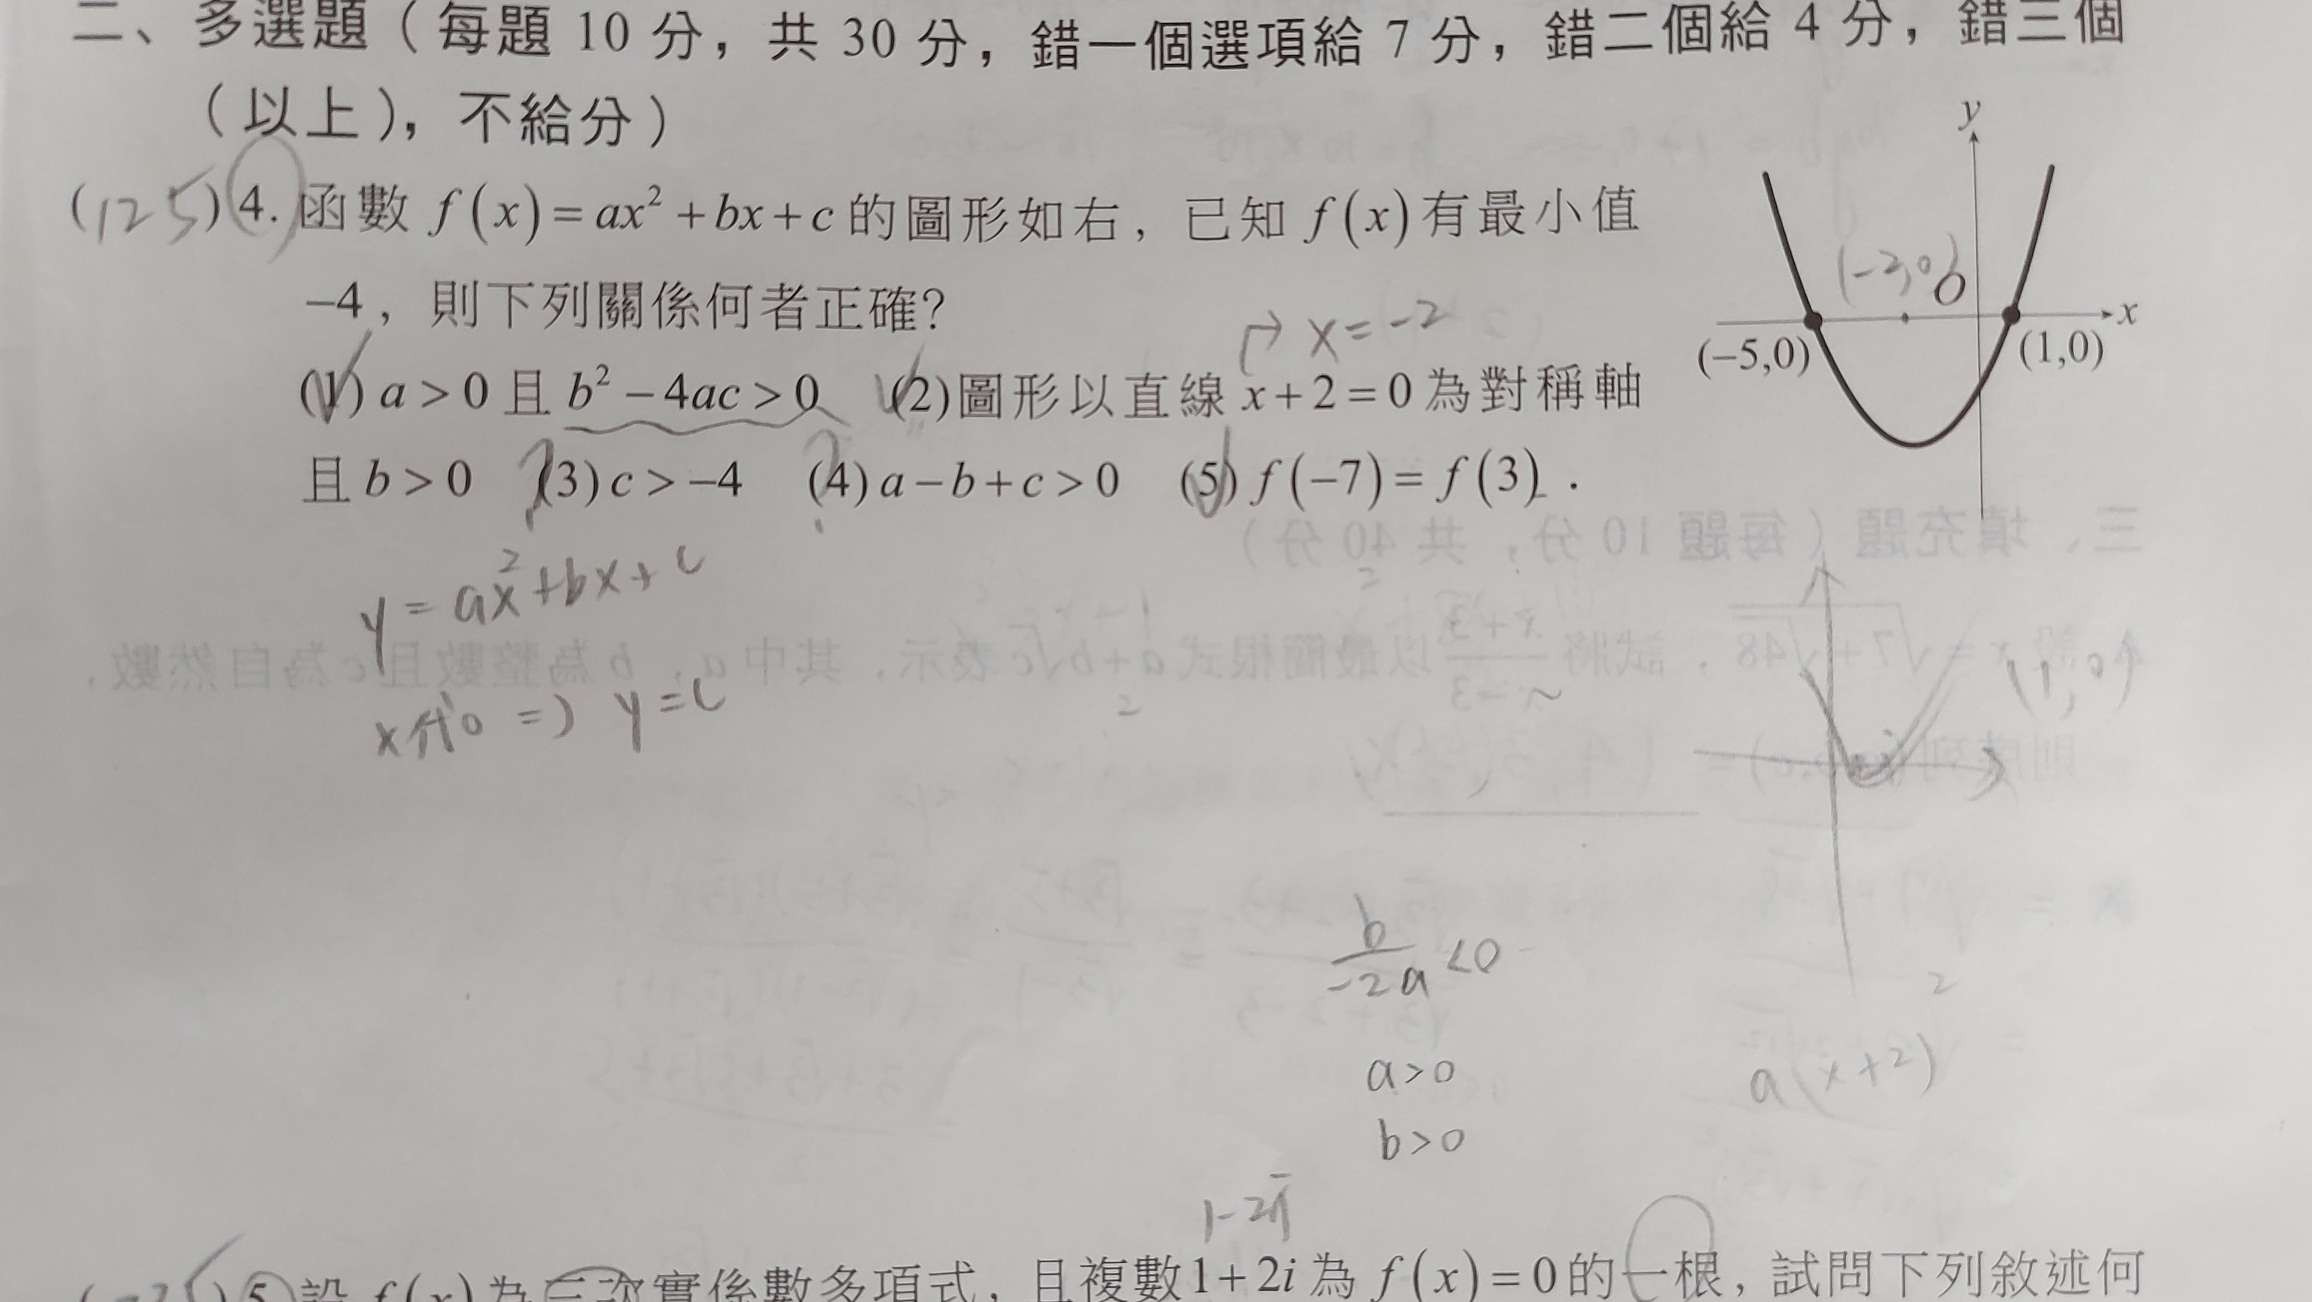 二、多選題（每題 10 分，共 30 分，錯一個選項給 7 分，錯二個給 4 分，錯三個
（以上），不給分）
(125) 4. 函數 f(x)=ax²+bx+c 的圖形如右，已知 f(x) 有最小值
−4，則下列關係何者正確？
x=-2
(1) a>0 且 b²−4ac>0 (2)圖形以直線 x+2=0 為對稱軸
且 b>0 (3) c>−4 (4) a−b+c>0 (5) f(−7)=f(3).
y
(-2,0)
x
(−5,0)
(1,0)
y=ax²+bx+c
x代0 => y=c
(1,0)
b/-2a <0
a>0
b>0
a(x+2)²
1-2i
5. 設 f(x) 為三次實係數多項式，且複數 1+2i 為 f(x)=0 的一根，試問下列敘述何